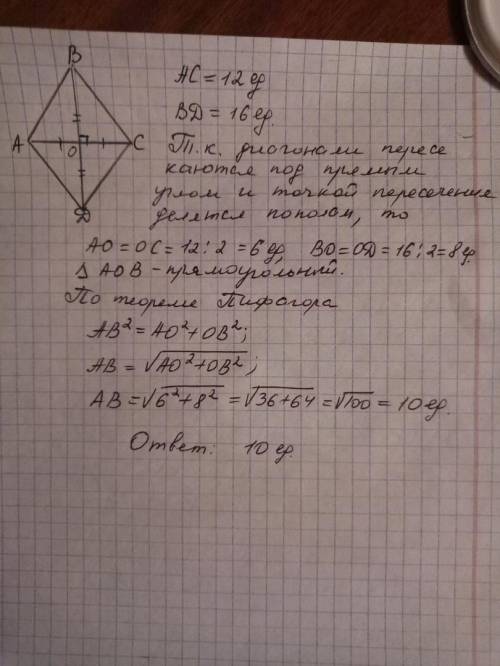 B
A
O
C
D
AC = 12 ед
BD = 16 ед.
Т.к. диагонали пересе
каются под прямым
углом и точкой пересечения
делятся пополам, то
AO = OC = 12 : 2 = 6 ед, BO = OD = 16 : 2 = 8 ед.
Δ AOB - прямоугольный.
По теореме Пифагора
AB² = AO² + OB²;
AB = √AO² + OB²;
AB = √6² + 8² = √36 + 64 = √100 = 10 ед.
Ответ: 10 ед.